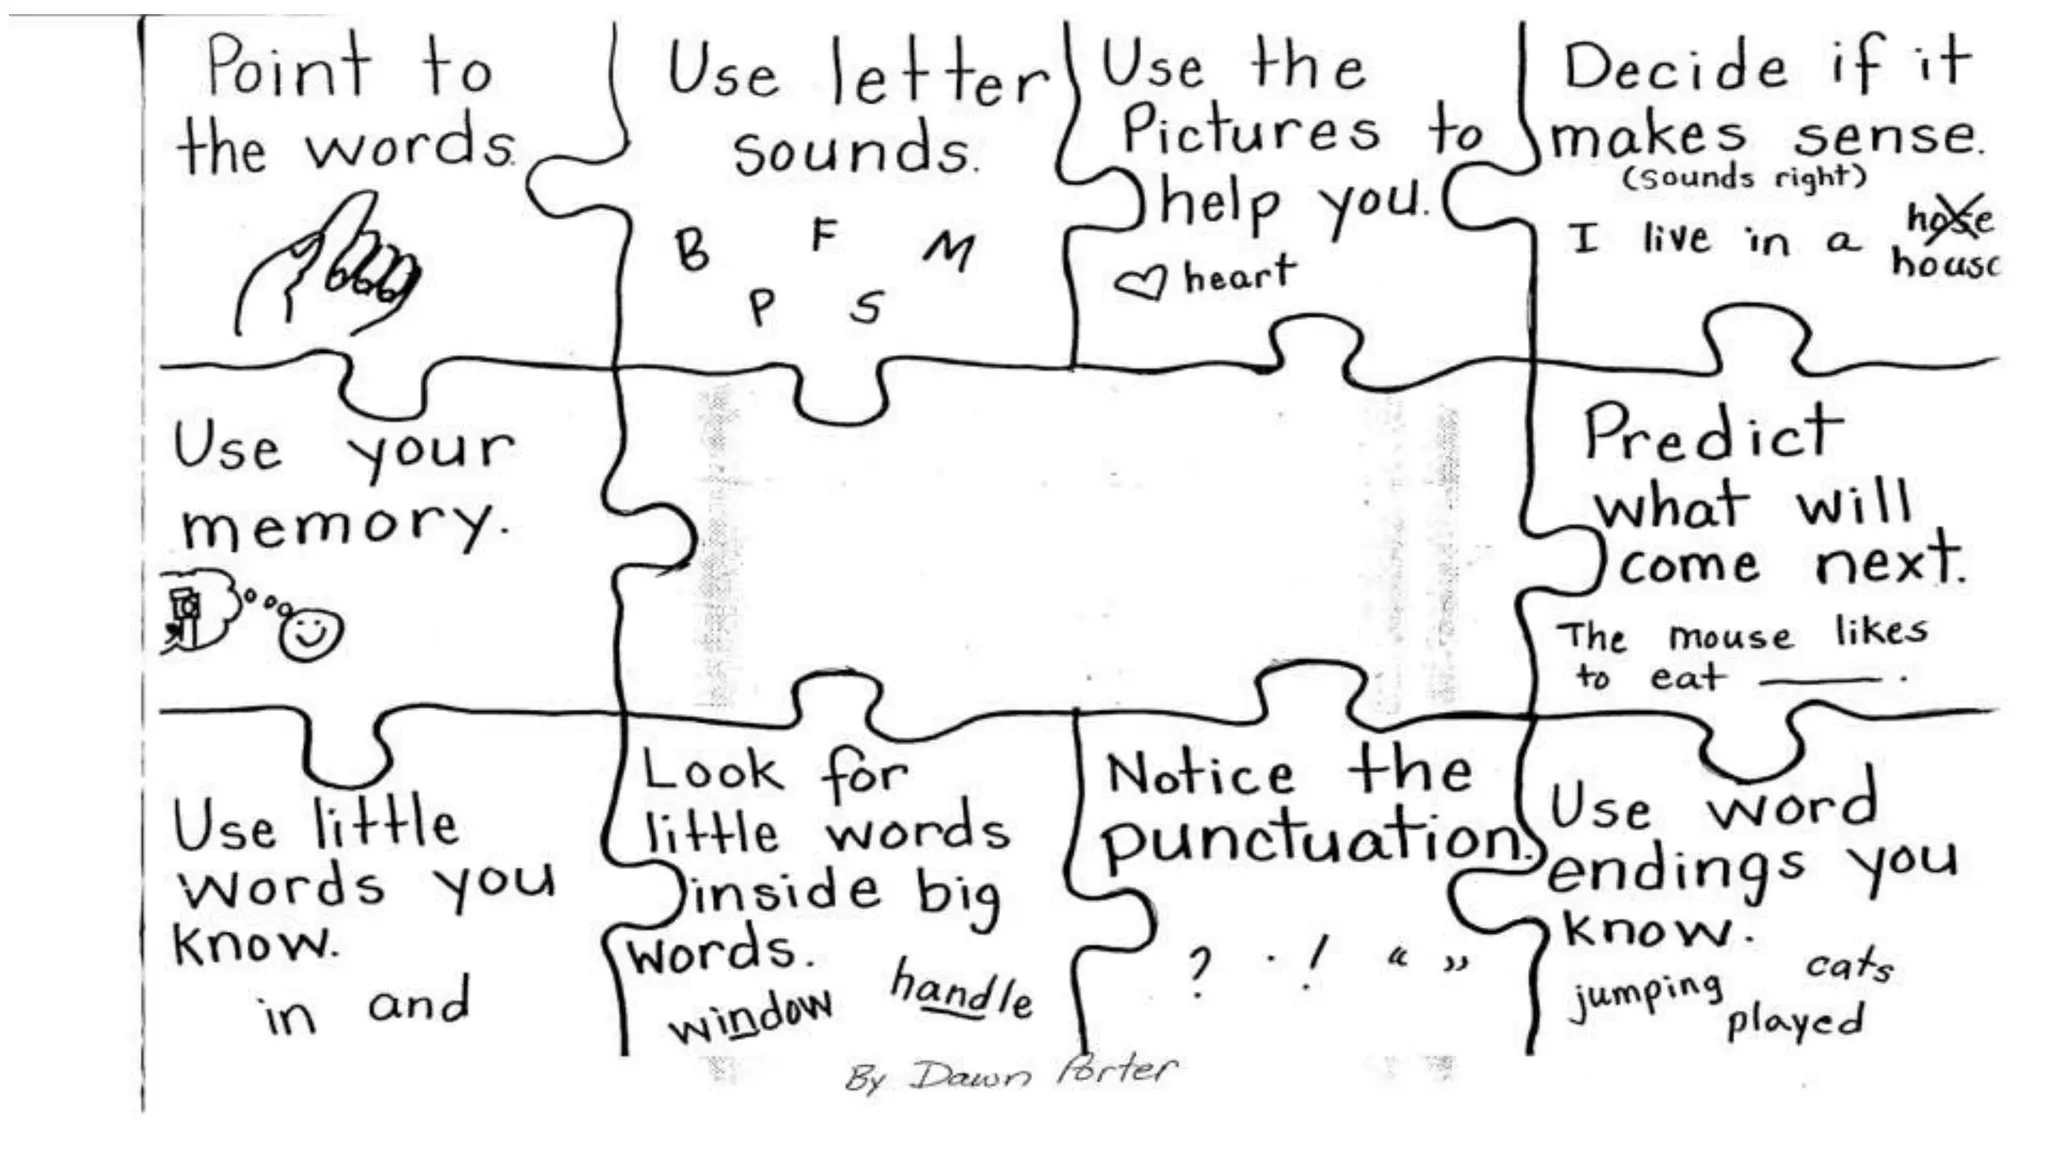 Point to
the words.
Use letter
sounds.
B F M
P S
Use the
Pictures to
help you.
heart
Decide if it
makes sense.
(sounds right)
I live in a hose
house
Use your
memory.
Predict
what will
come next.
The mouse likes
to eat ______.
Use little
words you
know.
in and
Look for
little words
inside big
words.
window handle
Notice the
punctuation.
? . ! “ ”
Use word
endings you
know.
jumping cats
played
By Dawn Porter